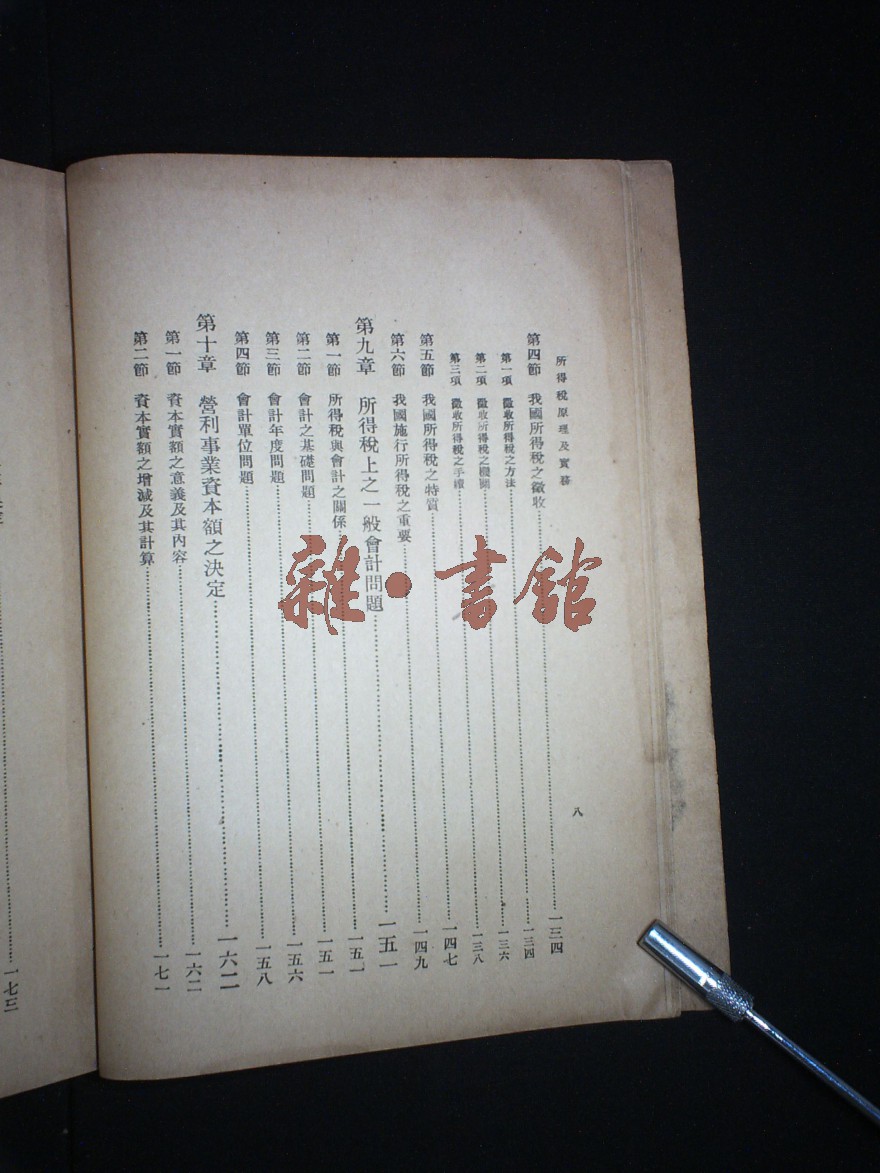 所得稅原理及實務
八
第四節 我國所得稅之徵收……一三四
第一項 徵收所得稅之方法……一三四
第二項 徵收所得稅之機關……一三六
第三項 徵收所得稅之手續……一三八
第五節 我國所得稅之特質……一四七
第六節 我國施行所得稅之重要……一四九
第九章 所得稅上之一般會計問題……一五一
第一節 所得稅與會計之關係……一五一
第二節 會計之基礎問題……一五一
第三節 會計年度問題……一五六
第四節 會計單位問題……一五八
第十章 營利事業資本額之決定……一六二
第一節 資本實額之意義及其內容……一六二
第二節 資本實額之增減及其計算……一七一
……一七三
雜·書館